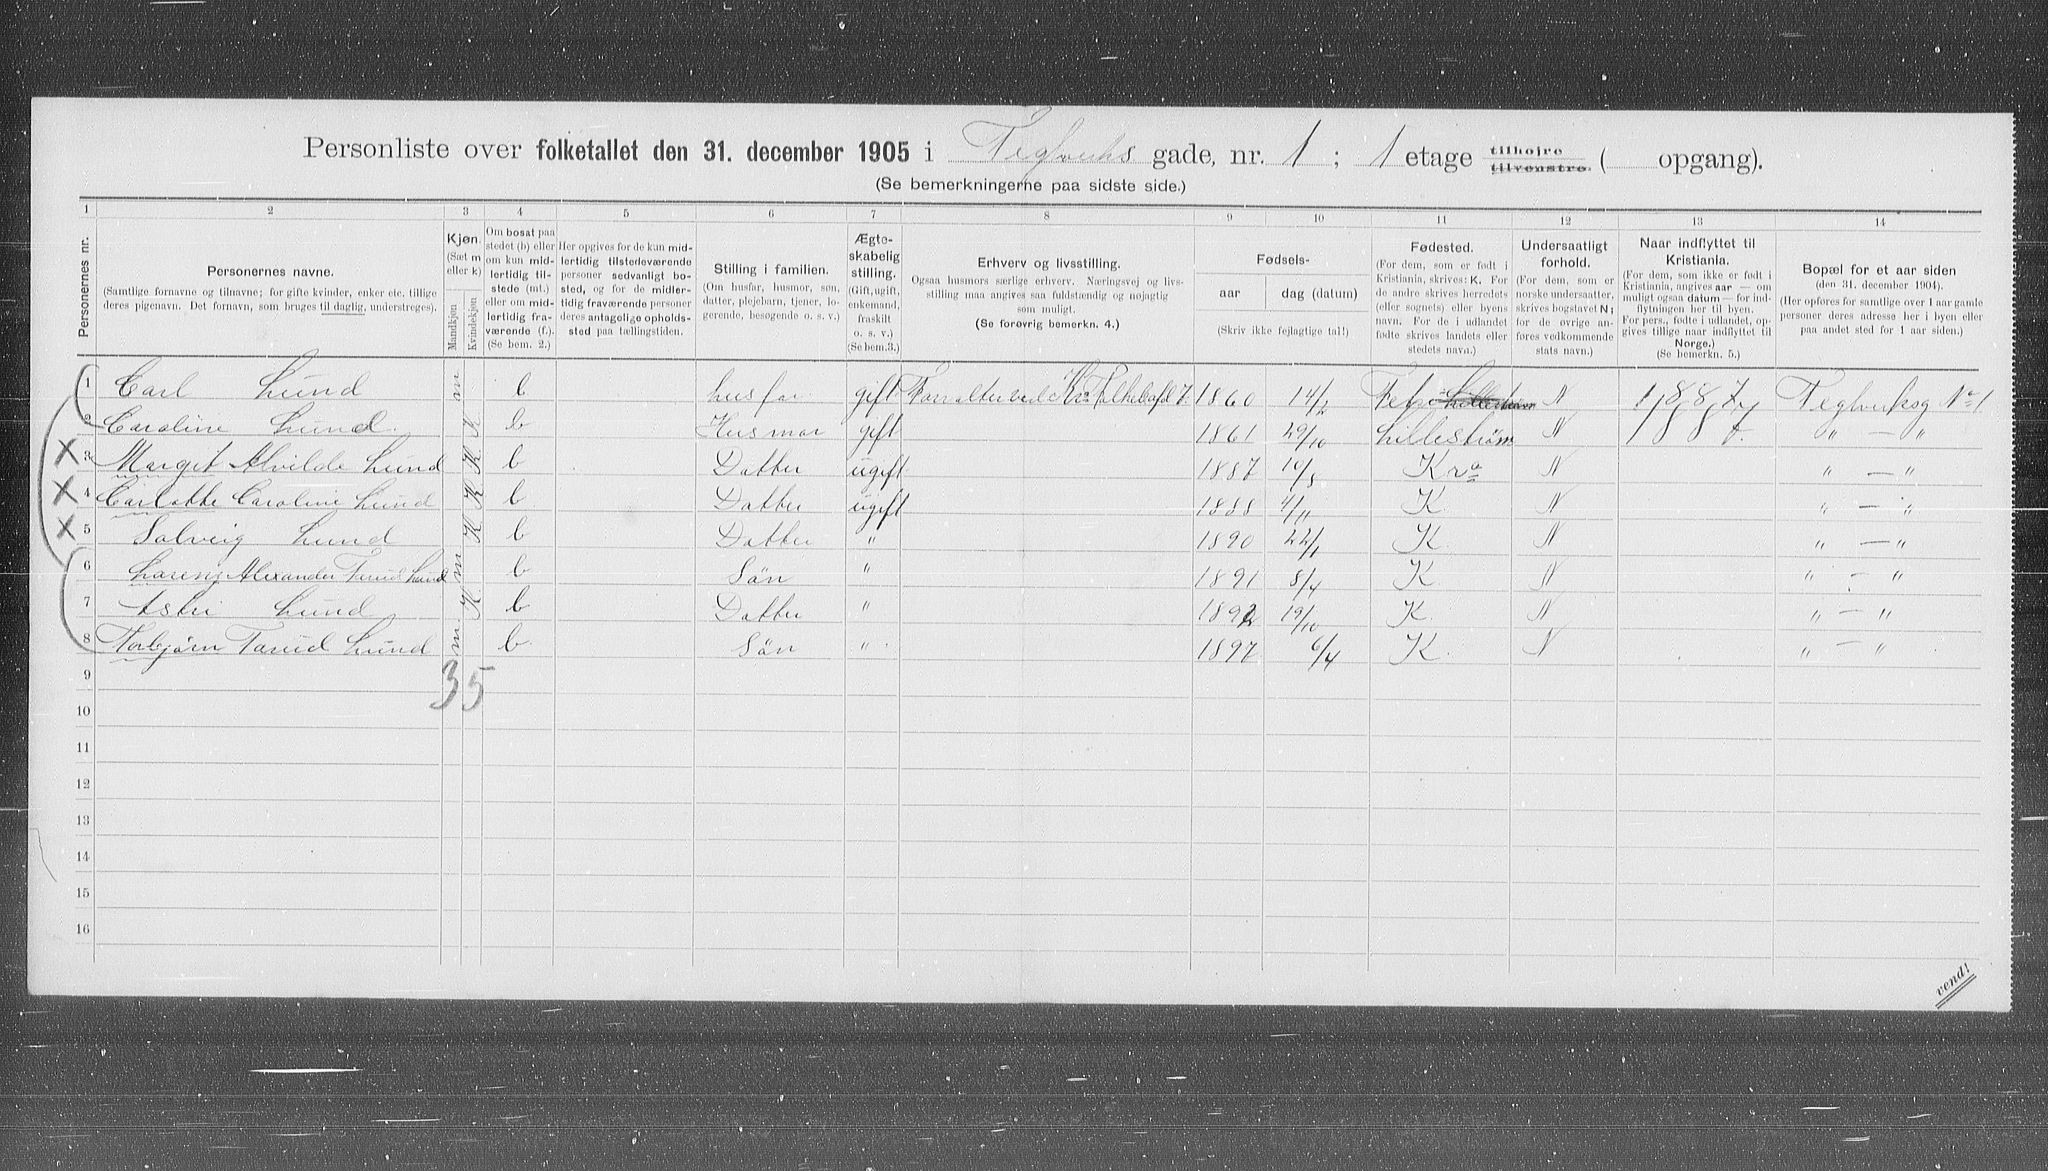 Personliste over folketallet den 31. december 1905 i Teglverks gade, nr. 1 ; 1 etage tilhøjre tilvenstre ( opgang).
(Se bemerkningerne paa sidste side.)
1 2 3 4 5 6 7 8 9 10 11 12 13 14
Personernes nr.
Personernes navne.
(Samtlige fornavne og tilnavne; for gifte kvinder, enker etc. tillige
deres pigenavn. Det fornavn, som bruges til daglig, understreges).
Kjøn.
(Sæt m
eller k)
Mandkjøn
Kvindekjøn
Om bosat paa
stedet (b) eller
om kun mid-
lertidig til-
stede (mt.)
eller om mid-
lertidig fra-
værende (f.).
(Se bem. 2.)
Her opgives for de kun mid-
lertidig tilstedeværende
personer sedvanligt bo-
sted, og for de midler-
tidig fraværende personer
deres antagelige opholds-
sted paa tællingstiden.
Stilling i familien.
(Om husfar, husmor, søn,
datter, plejebarn, tjener, lo-
gerende, besøgende o. s. v.)
Ægte-
skabelig
stilling.
(Gift, ugift,
enkemand,
fraskilt
o. s. v.)
(Se bem.3.)
Erhverv og livsstilling.
Ogsaa husmors særlige erhverv. Næringsvej og livs-
stilling maa angives saa fuldstændig og nøjagtig
som muligt.
(Se forøvrig bemerkn. 4.)
Fødsels-
aar
dag (datum)
(Skriv ikke fejlagtige tal!)
Fødested.
(For dem, som er født i
Kristiania, skrives: K. For
de andre skrives herredets
(eller sognets) eller byens
navn. For de i udlandet
fødte skrives landets eller
stedets navn.)
Undersaatligt
forhold.
(For dem, som er
norske undersaatter,
skrives bogstavet N;
for de øvrige an-
føres vedkommende
stats navn.)
Naar indflyttet til
Kristiania.
(For dem, som ikke er født i
Kristiania, angives aar — om
muligt ogsaa datum — for ind-
flytningen her til byen.
For pers., fødte i udlandet, op-
gives tillige naar indflyttet til
Norge.)
(Se bemerkn. 5.)
Bopæl for et aar siden
(den 31. december 1904).
(Her opføres for samtlige over 1 aar gamle
personer deres adresse her i byen eller
paa andet sted for 1 aar siden.)
1 Carl Lund m b husfar gift 1860 14/2 Fet N 1887 Teglverksg No 1
2 Caroline Lund K b Husmor gift 1861 29/10 Lillestrøm N 1887 " — "
3 Margit Alvilde Lund K b Datter ugift 1887 10/5 Kra N " — "
4 Carlotte Caroline Lund K b Datter ugift 1888 4/11 K. N " — "
5 Solveig Lund K b Datter " 1890 22/1 K. N " — "
6 Alexander Tarud Lund m b Sön " 1891 8/4 K. N " — "
7 Lund K b Datter " 1892 19/10 K. N " — "
8 Torbjørn Tarud Lund m. b. Sön " 1897 6/4 K. N " — "
9 3 5
10
11
12
13
14
15
16
vend!